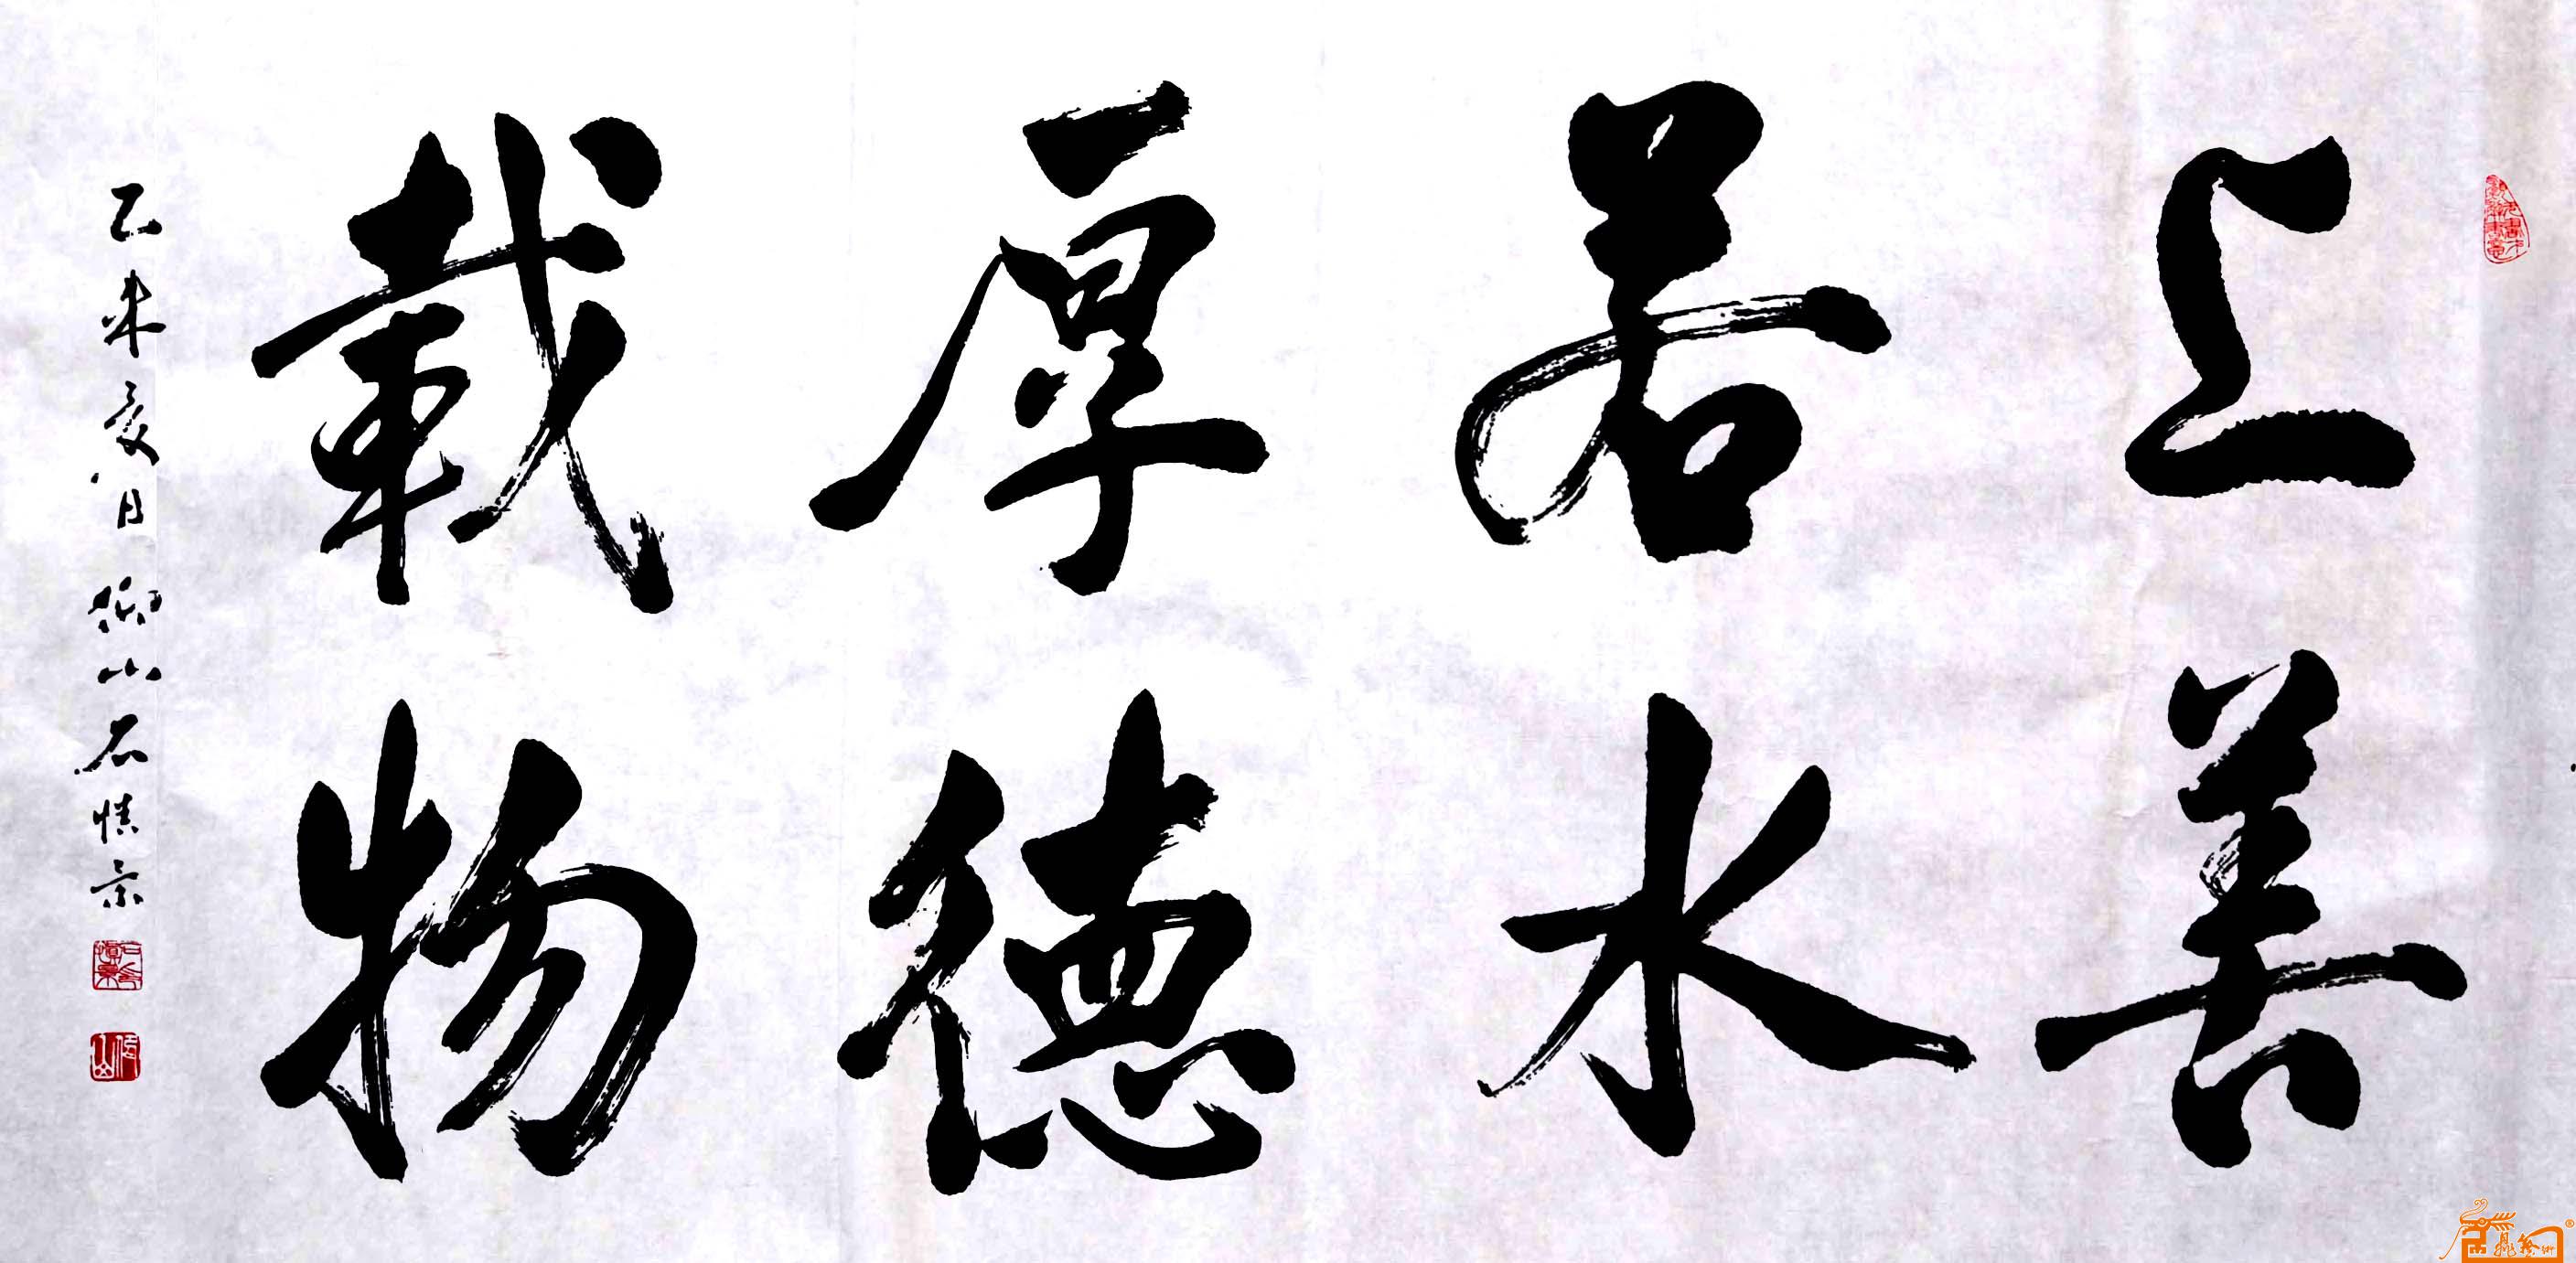 上善
若水
厚德
載物
乙未夏月仰山石慎景